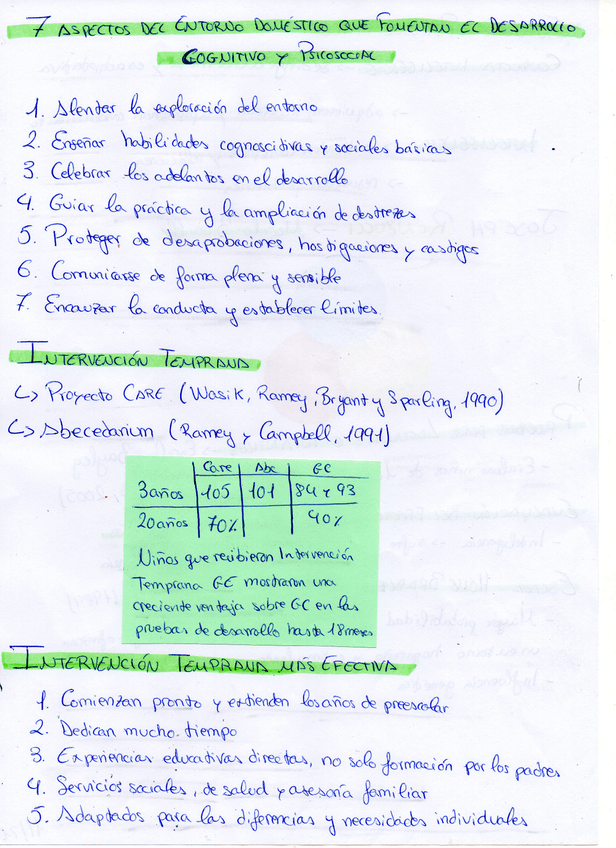 7 ASPECTOS DEL ENTORNO DOMÉSTICO QUE FOMENTAN EL DESARROLLO
COGNITIVO Y PSICOSOCIAL
1. Alentar la exploración del entorno
2. Enseñar habilidades cognoscitivas y sociales básicas
3. Celebrar los adelantos en el desarrollo
4. Guiar la práctica y la ampliación de destrezas
5. Proteger de desaprobaciones, hostigaciones y castigos
6. Comunicarse de forma plena y sensible
7. Encauzar la conducta y establecer límites.
INTERVENCIÓN TEMPRANA
↳ Proyecto CARE (Wasik, Ramey, Bryant y Sparling, 1990)
↳ Abecedarium (Ramey y Campbell, 1991)
Care Abc GC
3 años 105 101 84 y 93
20 años 70% 40%
Niños que recibieron Intervención
Temprana GE mostraron una
creciente ventaja sobre GC en las
pruebas de desarrollo hasta 18 meses
INTERVENCIÓN TEMPRANA MÁS EFECTIVA
1. Comienzan pronto y extienden los años de preescolar
2. Dedican mucho tiempo
3. Experiencias educativas directas, no solo formación por los padres
4. Servicios sociales, de salud y asesoría familiar
5. Adaptados para las diferencias y necesidades individuales